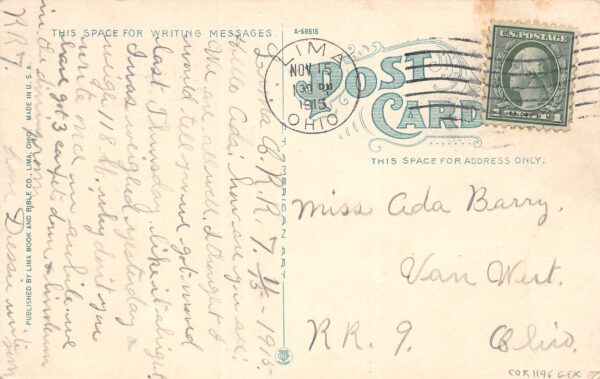 THIS SPACE FOR WRITING MESSAGES.
A-68515
Lima O. R.R. 7. 11/15-1915.
Hello Ada: How are you all?
We are all well. I thought I
would tell you we got moved
last Thursday, like it alright
I was weighed yesterday &
weigh 118 lb. why don't you
write me once in awhile. we
have got 3 carpets down & linoleum
in the
R R 7.
PUBLISHED BY LIMA BOOK AND BIBLE CO., LIMA, OHIO. MADE IN U. S. A.
LIMA
NOV 15
1 30 PM
1915
OHIO
POST
CARD
U.S. POSTAGE
THIS SPACE FOR ADDRESS ONLY.
Miss Ada Barry.
Van Wert.
R R. 9. Ohio.